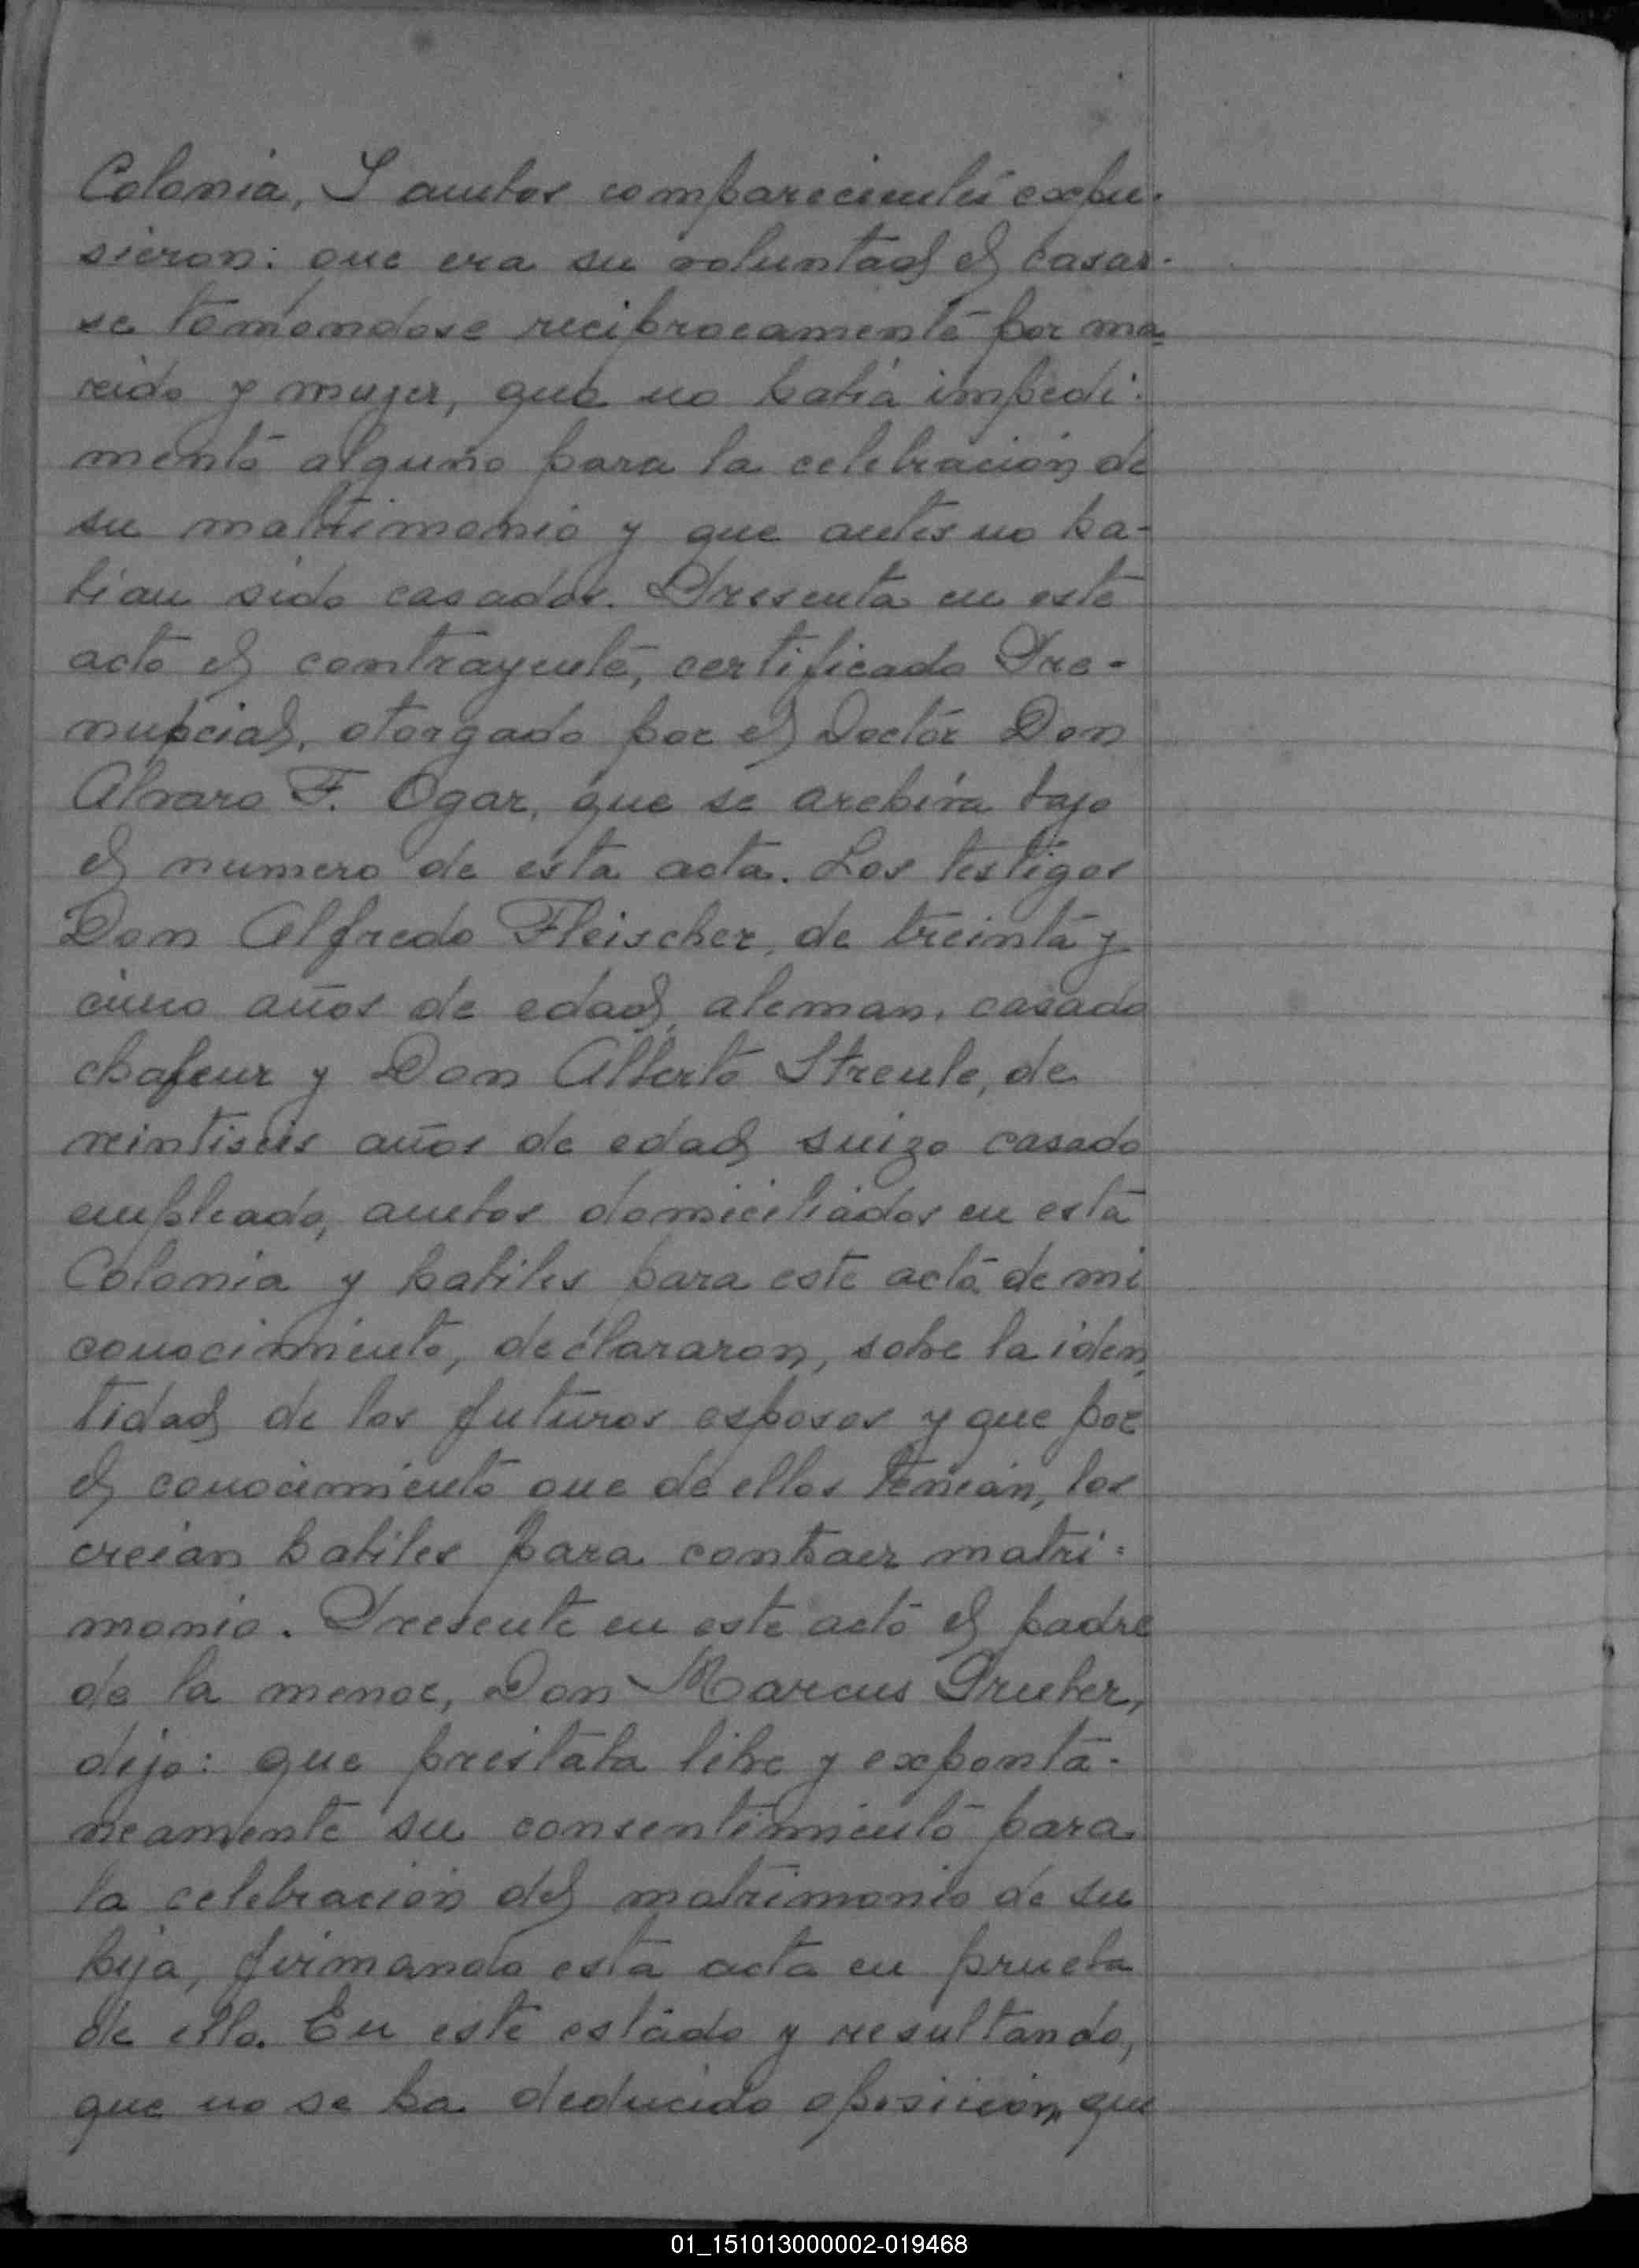 Colonia, Y ambos comparecientes expu-
sieron: que era su voluntad el casar-
se tomondose reciprocamente por ma-
rido y mujer, que no habia impedi-
mento alguno para la celebracion de
su matrimonio y que antes no ha-
bian sido casados. Presenta en este
acto el contrayente, certificado Pre-
nupcial, otorgado por el Doctor Don
Alvaro F. Ogar, que se archiva bajo
el numero de esta acta. Los testigos
Don Alfredo Fleischer, de treinta y
cinco años de edad, aleman, casado
chafeur y Don Alberto Streule, de
veintiseis años de edad suizo casado
empleado, ambos domiciliados en esta
Colonia y habiles para este acto de mi
conocimiento, declararon, sobre la iden
tidad de los futuros esposos y que por
el conocimiento que de ellos tenian, los
creian habiles para contraer matri-
monio. Presente en este acto el padre
de la menor, Don Marcus Gruber,
dijo: que prestaba libre y exponta-
neamente su consentimiento para
la celebracion del matrimonio de su
hija, firmando esta acta en prueba
de ello. En este estado y resultando,
que no se ha deducido oposicion, que
01_151013000002-019468